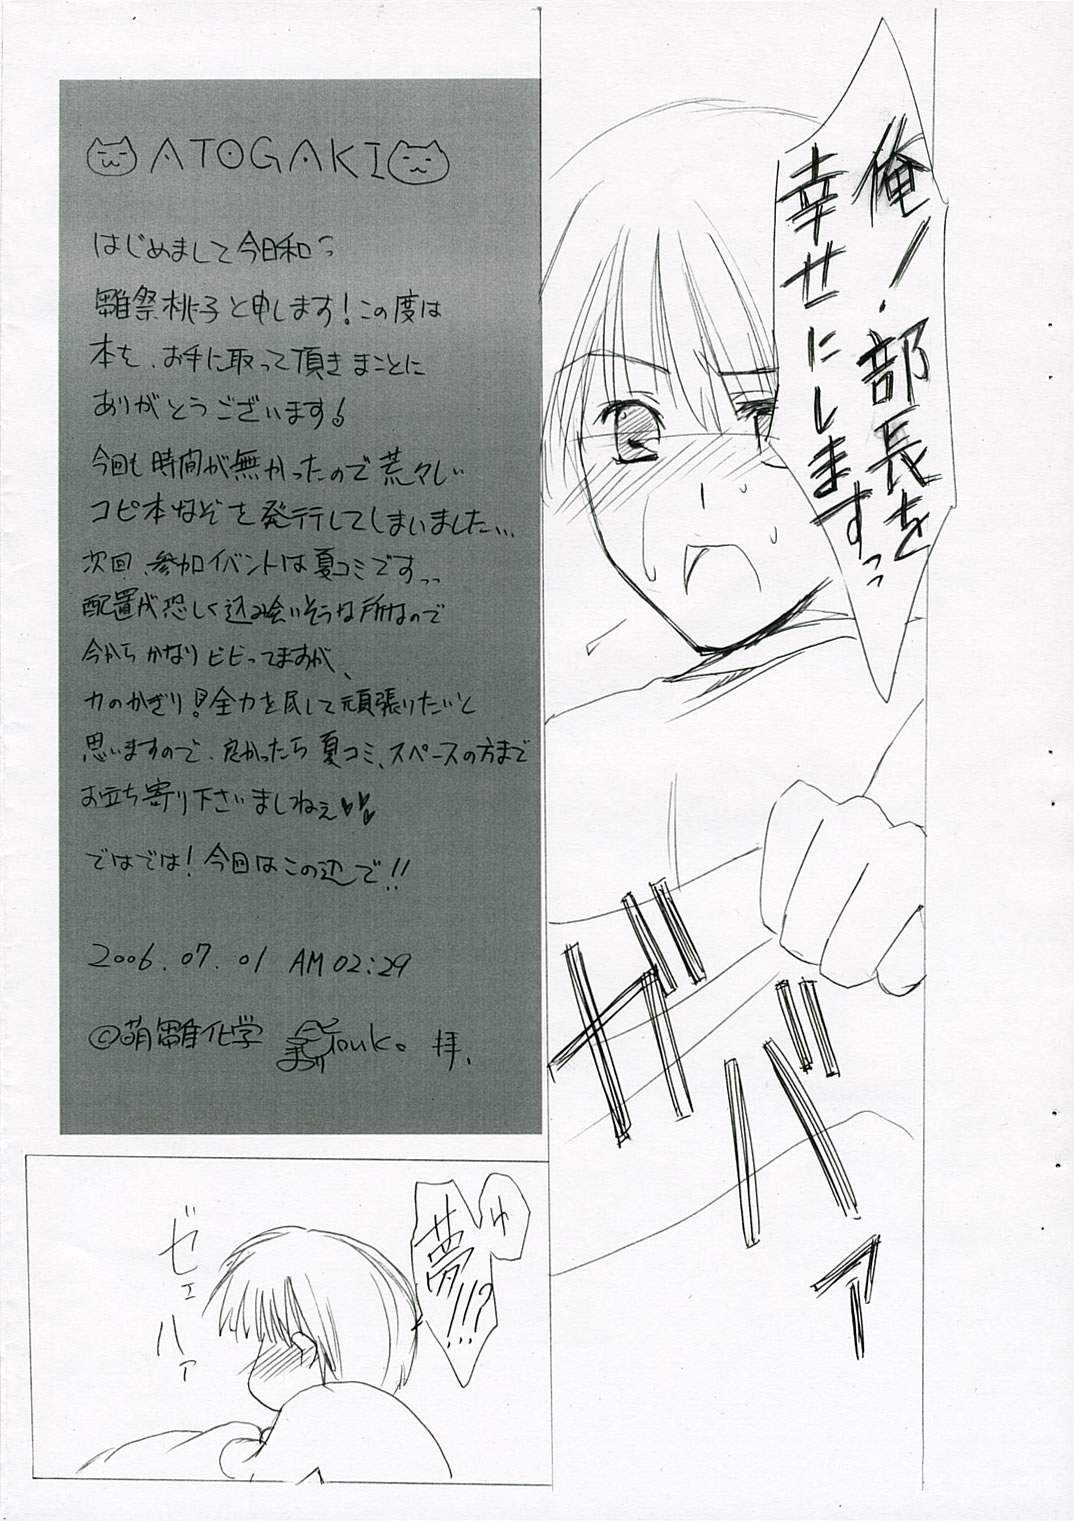 俺ッ！部長を
幸せにしますっっ
ガバァ
ATOGAKI
はじめまして今日和っ
雛祭桃子と申します！この度は
本を、お手に取って頂きまことに
ありがとうございます！
今回も時間が無かったので荒々しい
コピ本なぞを発行してしまいました…
次回、参加イベントは夏コミですっっ
配置が恐しく込み会いそうな所なので
今からかなりビビってますが、
力のかぎり！全力を尽して頑張りたいと
思いますので、良かったら夏コミ、スペースの方まで
お立ち寄り下さいましねぇ♥♥
ではでは！今回はこの辺で!!
2006.07.01 AM02:29
©萌雛化学 Touko 拝、
ゆ
夢!!!?
ゼェ
ハァ